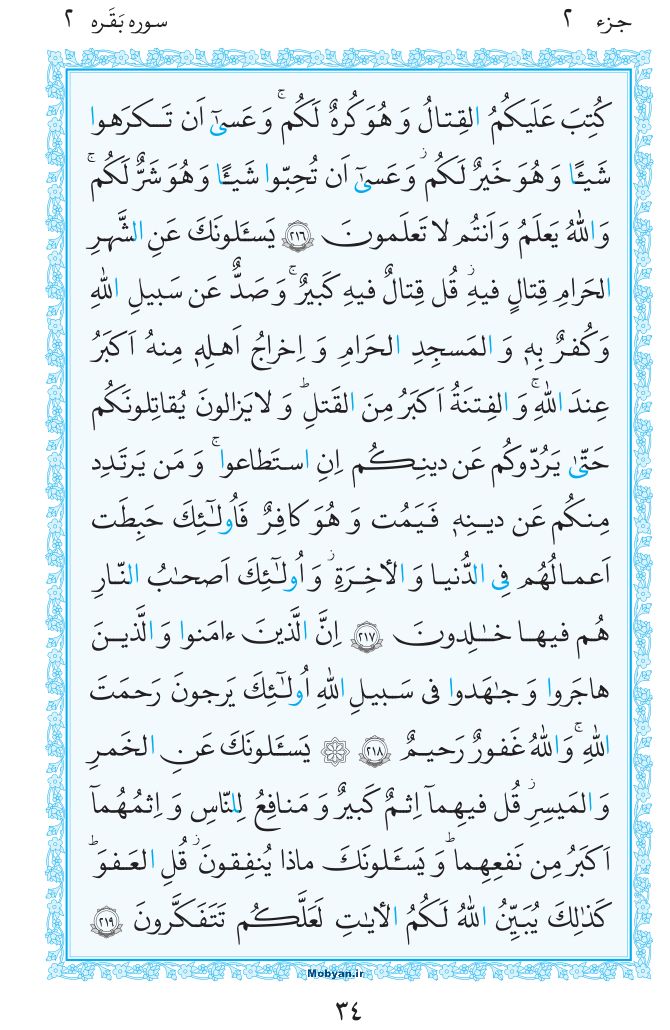 جزء ۲ سوره بَقَره ۲
كُتِبَ عَلَيكُمُ القِتالُ وَ هُوَ كُرهٌ لَكُم ۚ وَ عَسىٰٓ اَن تَـكرَهوا
شَيـًٔا وَ هُوَ خَيرٌ لَكُم ۖ وَ عَسىٰٓ اَن تُحِبّوا شَيـًٔا وَ هُوَ شَرٌّ لَكُم ۚ
وَ اللهُ يَعلَمُ وَ اَنتُم لا تَعلَمونَ ﴿۲۱۶﴾ يَسـَٔلونَكَ عَنِ الشَّهرِ
الحَرامِ قِتالٍ فيهِ ۖ قُل قِتالٌ فيهِ كَبيرٌ ۚ وَ صَدٌّ عَن سَبيلِ اللهِ
وَ كُفرٌ بِهٖ وَ المَسجِدِ الحَرامِ وَ اِخراجُ اَهلِهٖ مِنهُ اَكبَرُ
عِندَ اللهِ ۚ وَ الفِتنَةُ اَكبَرُ مِنَ القَتلِ ؕ وَ لايَزالونَ يُقاتِلونَكُم
حَتّىٰ يَرُدّوكُم عَن دينِكُم اِنِ استَطاعوا ۚ وَ مَن يَرتَدِد
مِنكُم عَن دينِهٖ فَيَمُت وَ هُوَ كافِرٌ فَاُولٰٓئِكَ حَبِطَت
اَعمالُهُم فِى الدُّنيا وَ الأخِرَةِ ۖ وَ اُولٰٓئِكَ اَصحٰبُ النّارِ
هُم فيها خٰلِدونَ ﴿۲۱۷﴾ اِنَّ الَّذينَ ءامَنوا وَ الَّذينَ
هاجَروا وَ جٰهَدوا فى سَبيلِ اللهِ اُولٰٓئِكَ يَرجونَ رَحمَتَ
اللهِ ۚ وَ اللهُ غَفورٌ رَحيمٌ ﴿۲۱۸﴾ يَسـَٔلونَكَ عَنِ الخَمرِ
وَ المَيسِرِ ۖ قُل فيهِمآ اِثمٌ كَبيرٌ وَ مَنافِعُ لِلنّاسِ وَ اِثمُهُمآ
اَكبَرُ مِن نَفعِهِما ؕ وَ يَسـَٔلونَكَ ماذا يُنفِقونَ ۖ قُلِ العَفوَ ؕ
كَذٰلِكَ يُبَيِّنُ اللهُ لَكُمُ الأيٰتِ لَعَلَّكُم تَتَفَكَّرونَ ﴿۲۱۹﴾
Mobyan.ir
۳۴